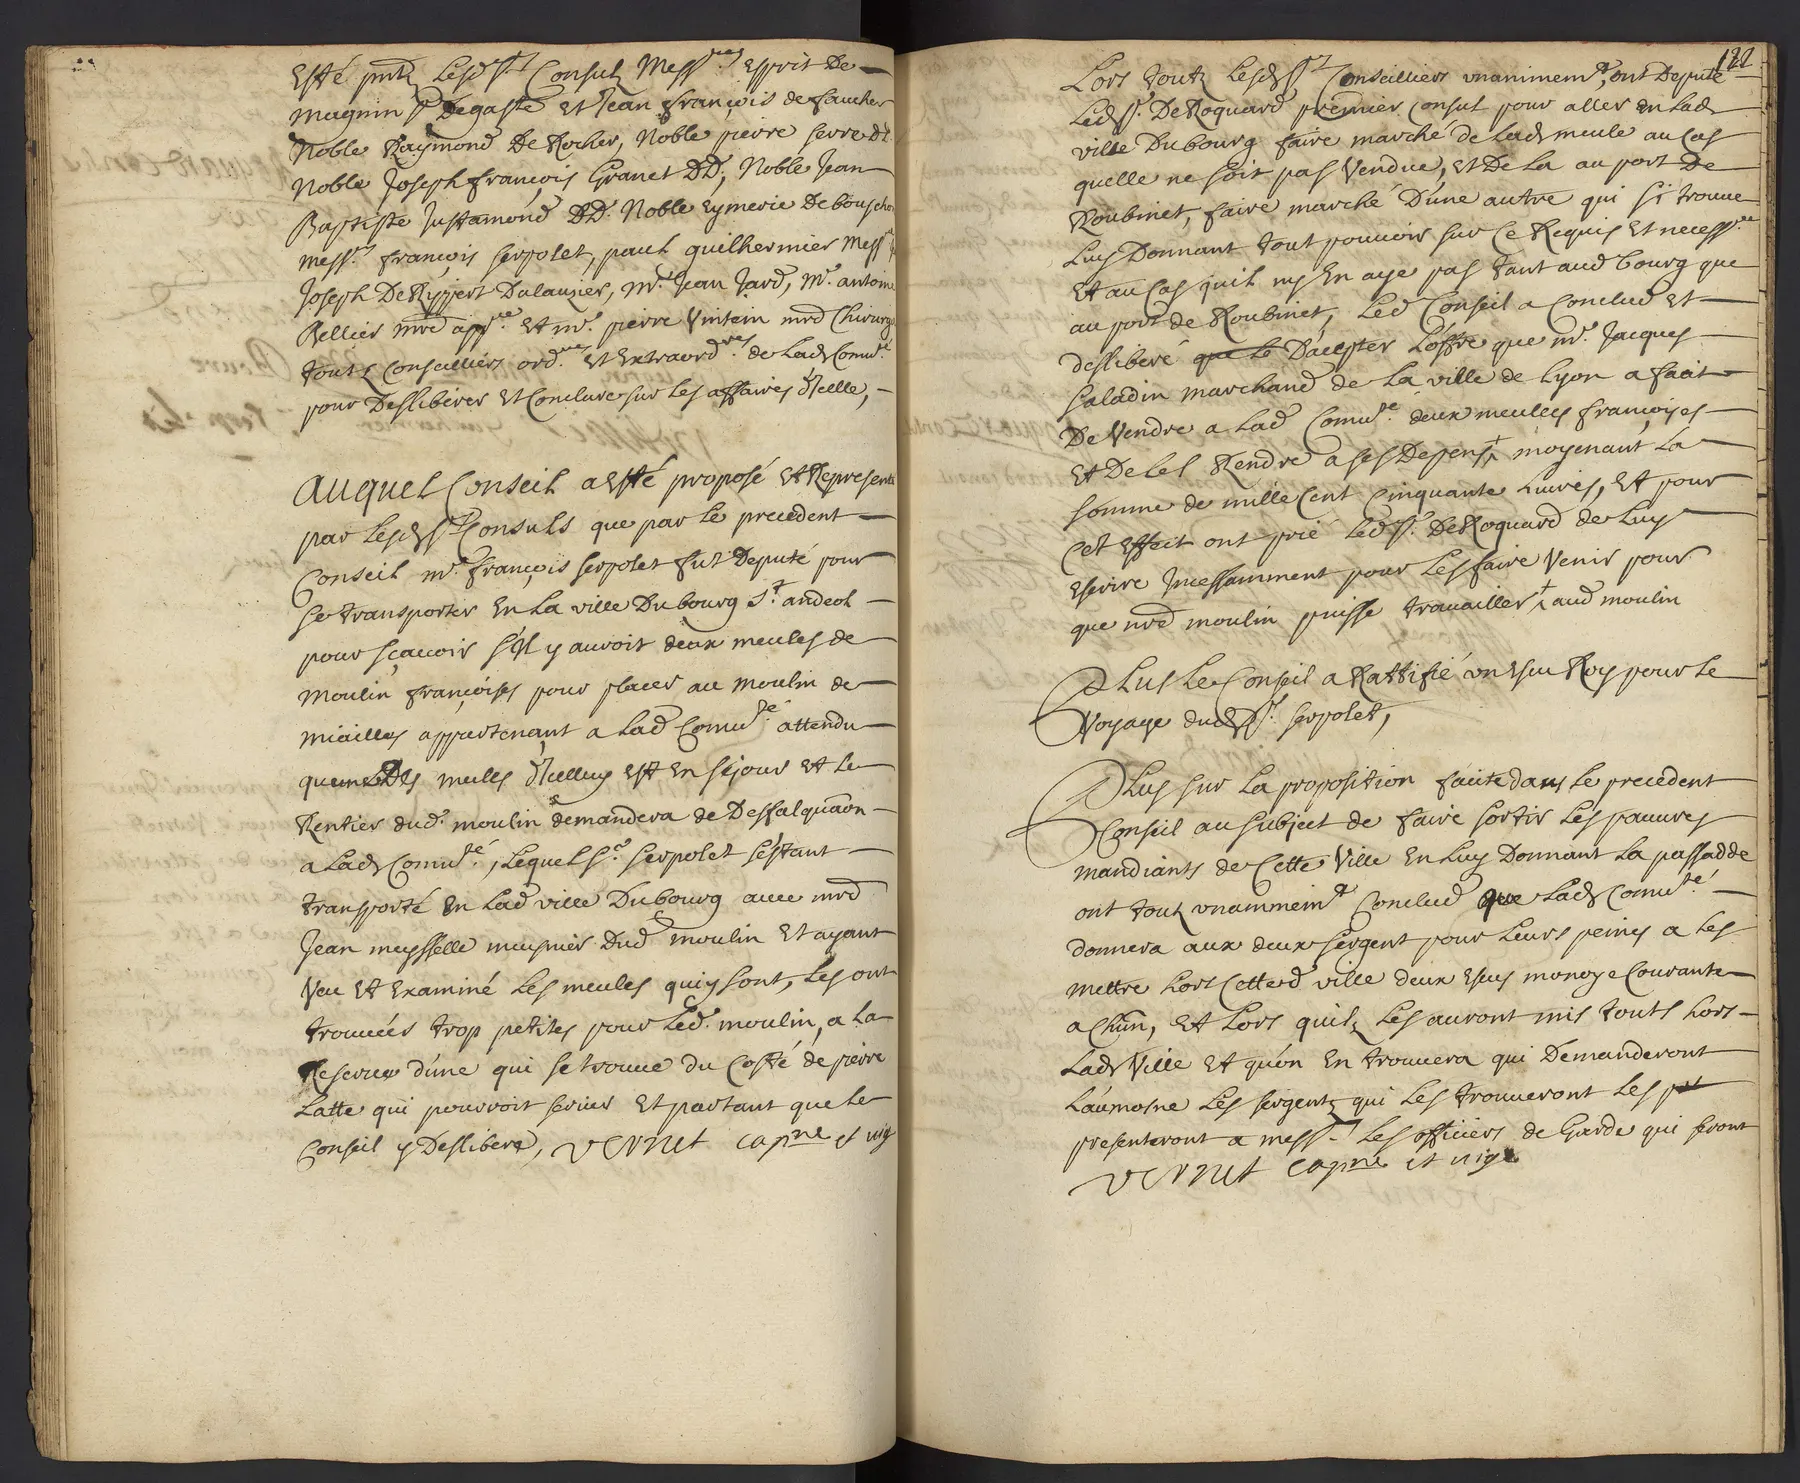 Esté pntz Lesd. Srs Consulz Messrs Esprit De
magnin Sr Degaste Et Jean françois de faucher
Noble Raymond De Rocher, Noble pierre serre DD.
Noble Joseph françois Granet DD; Noble Jean
Baptiste Justamond DD. Noble Eymeric De bouschon
Messrs françois serpolet, paul guilhermier Messrs
Joseph De Rippert Dalauzier, Mr. Jean Jard, Mr. antoine
Rellier mrd appre. Et mr. pierre Vintein mrd Chirurg
toutz Conseilliers ordres Et Extraordres. de Lad. Comuté
pour Deslibérer Et Conclure sur Les affaires d'Icelle,
Auquel Conseil a Esté proposé Et Representé
par Lesd. Srs Consuls que par Le precedent
Conseil mr. françois serpolet fut Deputé pour
se transporter En La ville Du bourg St. andeol
pour sçavoir s'il y auroit deux meules de
moulin françoises pour placer au Moulin de
miailles appartenant a Lad Comuté. attendu
que une Des meules d'Icelluy Est En sejour Et Le
Rentier dud. moulin demandera de Desfalquaon
a Lad. Comuté, Lequel Sr. serpolet s'estant
transporté En Lad ville Du bourg avec mrd
Jean meysselle meusnier Dud moulin Et ayant
Veu Et Examiné Les meules qui y sont, Les ont
trouvées trop petites pour Led. moulin, a La
Reserve d'une qui se trouve du Costé de pierre
Latte qui pourroit servir Et partant que Le
Conseil y Deslibere, Vernet capne et vig
122
Lors toutz Lesd. Srs Conseilliers vnanimemt, ont Deputé
Led. Sr. De Roquard premier Consul pour aller En Lad.
ville Du bourg faire marché de Lad. meule au Cas
quelle ne soit pas Vendue, Et De La au port De
Roubinet, faire marché D'une autre qui si trouve
Luy Donnant tout pouvoir sur Ce Requis Et necessre
Et au Cas qu'il ny En aye pas tant aud bourg que
au port de Roubinet, Led Conseil a Conclud Et
deslibéré que Le D'accepter L'offre que mr. Jacques
saladin marchand de La ville de Lyon a fait
De Vendre a Lad Comuté. deux meulles françoises
Et De Les Rendre a ses Depens + moyenant La
somme de mille Cent Cinquante Livres, Et pour
Cet Effect ont prié Led Sr. De Roquard de Luy
Escrire Incessamment pour Les faire Venir pour
que nred moulin puisse travailler + aud moulin
Plus Le Conseil a Rattifié vn Escu Roy pour Le
Voyage dud. Sr. serpolet,
Plus sur La proposition faite dans Le precedent
Conseil au subject de faire sortir Les pauvres
mandiants de Cette Ville En Luy Donnant La passadde
ont toutz vnanimemt Conclud que Lad. Comuté
donnera aux deux sergent pour Leurs peines a Les
mettre hors Cetted ville deux Escus monoye Courante
a Chun, Et Lors quilz Les auront mis touts hors
Lad. Ville Et qu'on En trouvera qui Demanderont
L'aumosne Les sergentz qui Les trouveront Les
presenteront a Messrs Les officiers de Garde qui seront
Vernet capne et vig